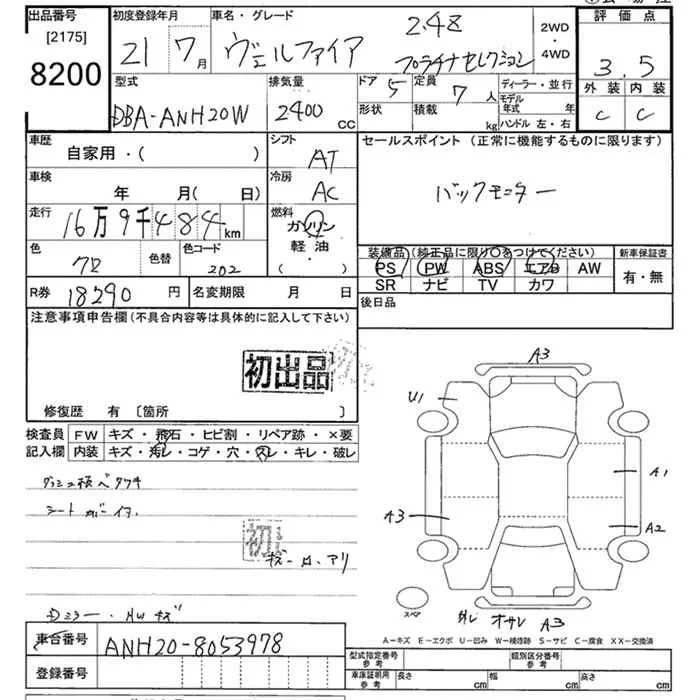 出品番号
[2175]
8200
初度登録年月
21 7月
車名・グレード
ヴェルファイア
2.4Z
プラチナセレクション
2WD
・
4WD
評価点
3.5
外装 内装
C C
型式
DBA-ANH20W
排気量
2400
CC
ドア 5
定員 7 人
形状
積載 kg
ディーラー・並行
モデル年式 年
ハンドル 左・右
車歴
自家用・( )
シフト
AT
セールスポイント (正常に機能するものに限ります)
バックモニター
車検
年 月( 日)
冷房
AC
走行
16万9千484km
燃料
ガソリン
軽油
・( )
色
色替
色コード
202
装備品(純正品に限り○をつけてください)
PS PW ABS エアB AW
SR ナビ TV カワ
新車保証書
有・無
R券 18290 円
名変期限 月 日
後日品
注意事項申告欄(不具合内容等は具体的に記入して下さい)
初出品
修復歴 有 〔箇所 〕
検査員
記入欄
FW キズ・飛石・ヒビ割・リペア跡・×要
内装 キズ・汚レ・コゲ・穴・スレ・キレ・破レ
シート
初
Dミラー・HWキズ
A3
U1
A1
A3
A2
スペア
A3
A-キズ E-エクボ U-凹み W-補修跡 S-サビ C-腐食 XX-交換済
車台番号
ANH20-8053978
登録番号
型式指定番号
参考
類別区分番号
参考
車庫証明用
参考
長さ cm
幅 cm
高さ cm